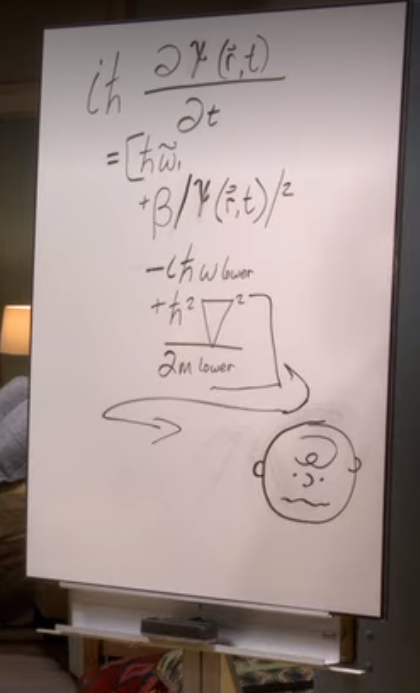 iħ ∂Ψ(r⃗,t)
∂t
= [ħω̃,
+β/Ψ(r⃗,t)/²
-iħω lower
+ħ²∇²
2m lower